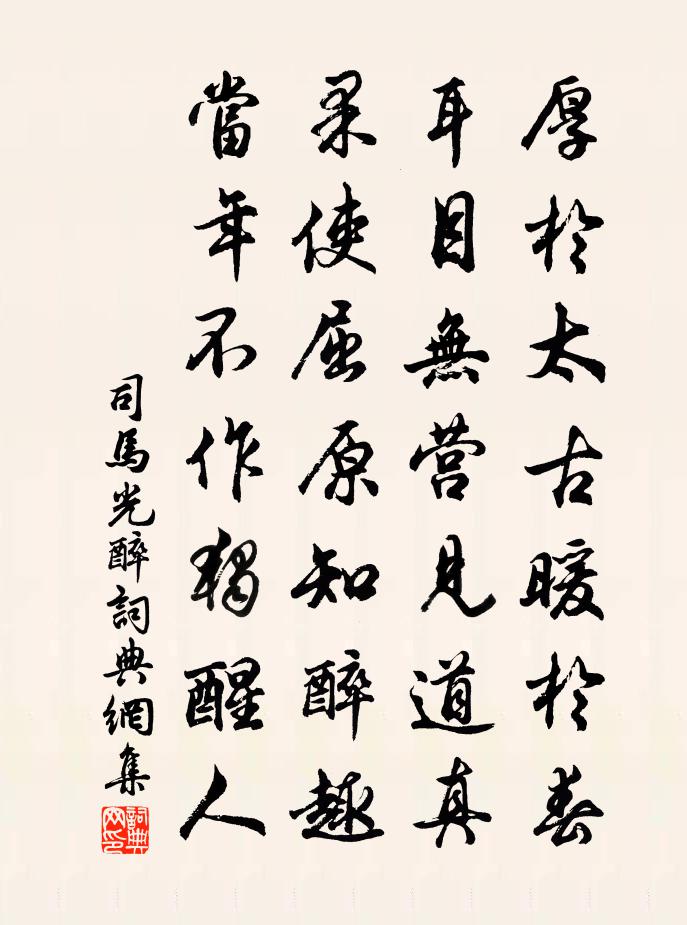 厚於太古暖於春
耳目無営見道真
果使屈原知醉趣
當年不作獨醒人
司馬光醉詞典網集
詞典網印